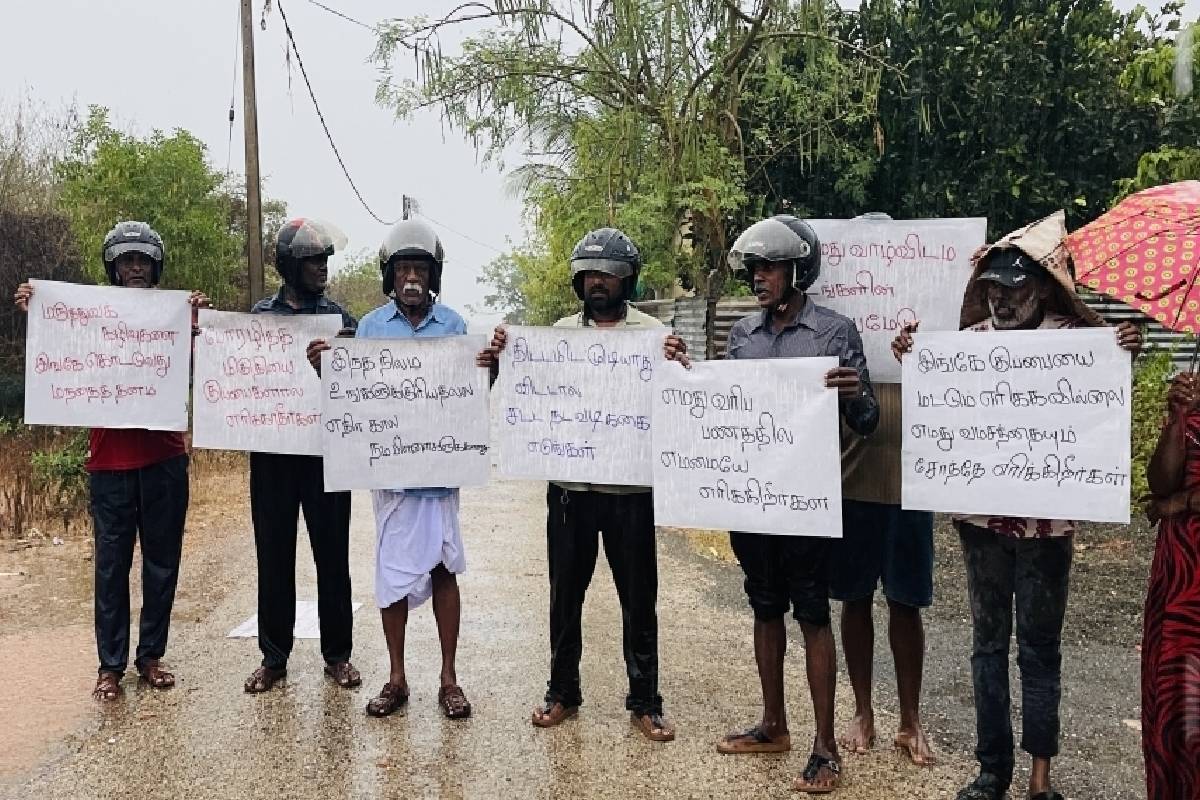 மருத்துவக்
கழிவுகளை
இங்கே கொட்டுவது
மடத்தனம்
போரழித்த
மீதியை
குப்பைகளால்
எரிக்காதீர்கள்
இந்த நிலம்
உங்களுக்குரியதல்ல
எதிர் கால
நம் பிள்ளைகளுக்கானது
திட்டமிட முடியாது
விட்டால்
சட்ட நடவடிக்கை
எடுங்கள்
எமது வரிப்
பணத்தில்
எம்மையே
எரிக்கிறீர்கள்
எமது வாழ்விடம்
இங்கே குப்பையை
மட்டும் எரிக்கவில்லை
எமது வம்சத்தையும்
சேர்த்தே எரிக்கிறீர்கள்